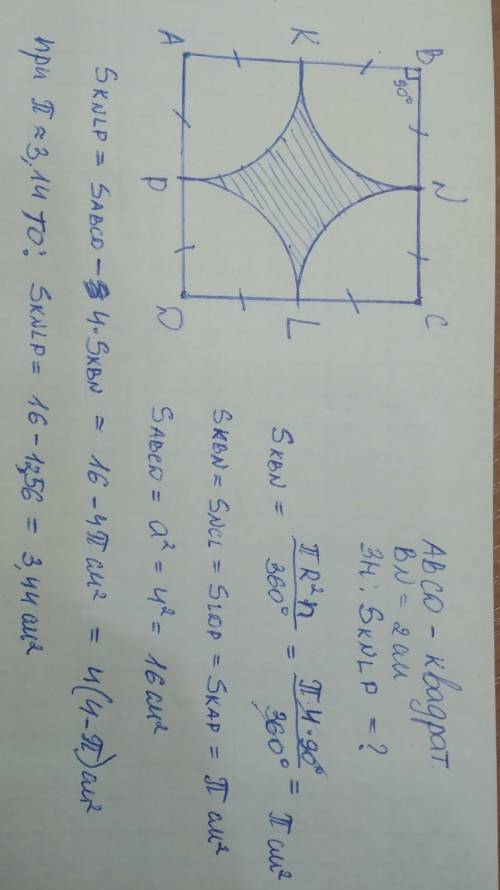 A K B
90°
P N
D L C
ABCD – квадрат.
BN = 2 см
Зн: SKNLP = ?
SKBN = πR²n / 360° = π·4·90° / 360° = π см²
SKBN = SNCL = SLDP = SKAP = π см²
SABCD = a² = 4² = 16 см²
SKNLP = SABCD – 4·SKBN = 16 – 4π см² = 4(4–π) см²
при π ≈ 3,14 то: SKNLP = 16 – 12,56 = 3,44 см²